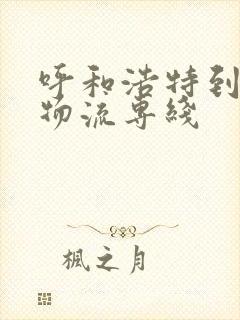 呼和浩特到
物流专綫
楓之月